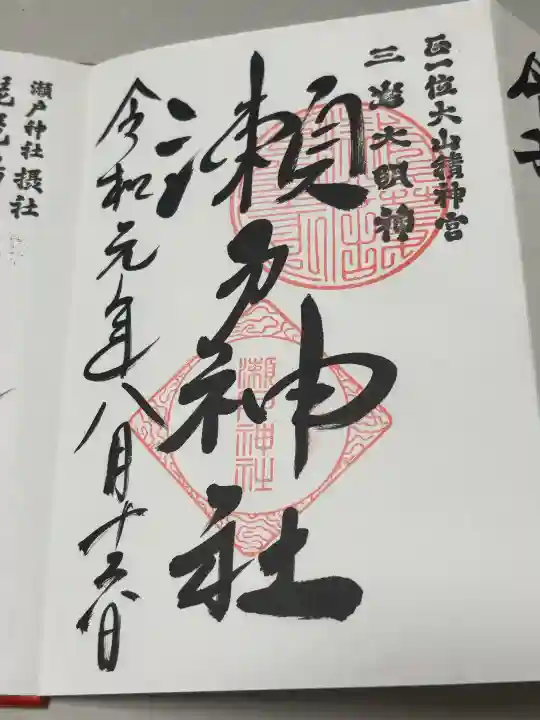 正一位大山積神宮
三嶋大明神
瀬戸神社
令和元年八月十六日
瀬戸神社
瀬戸神社摂社